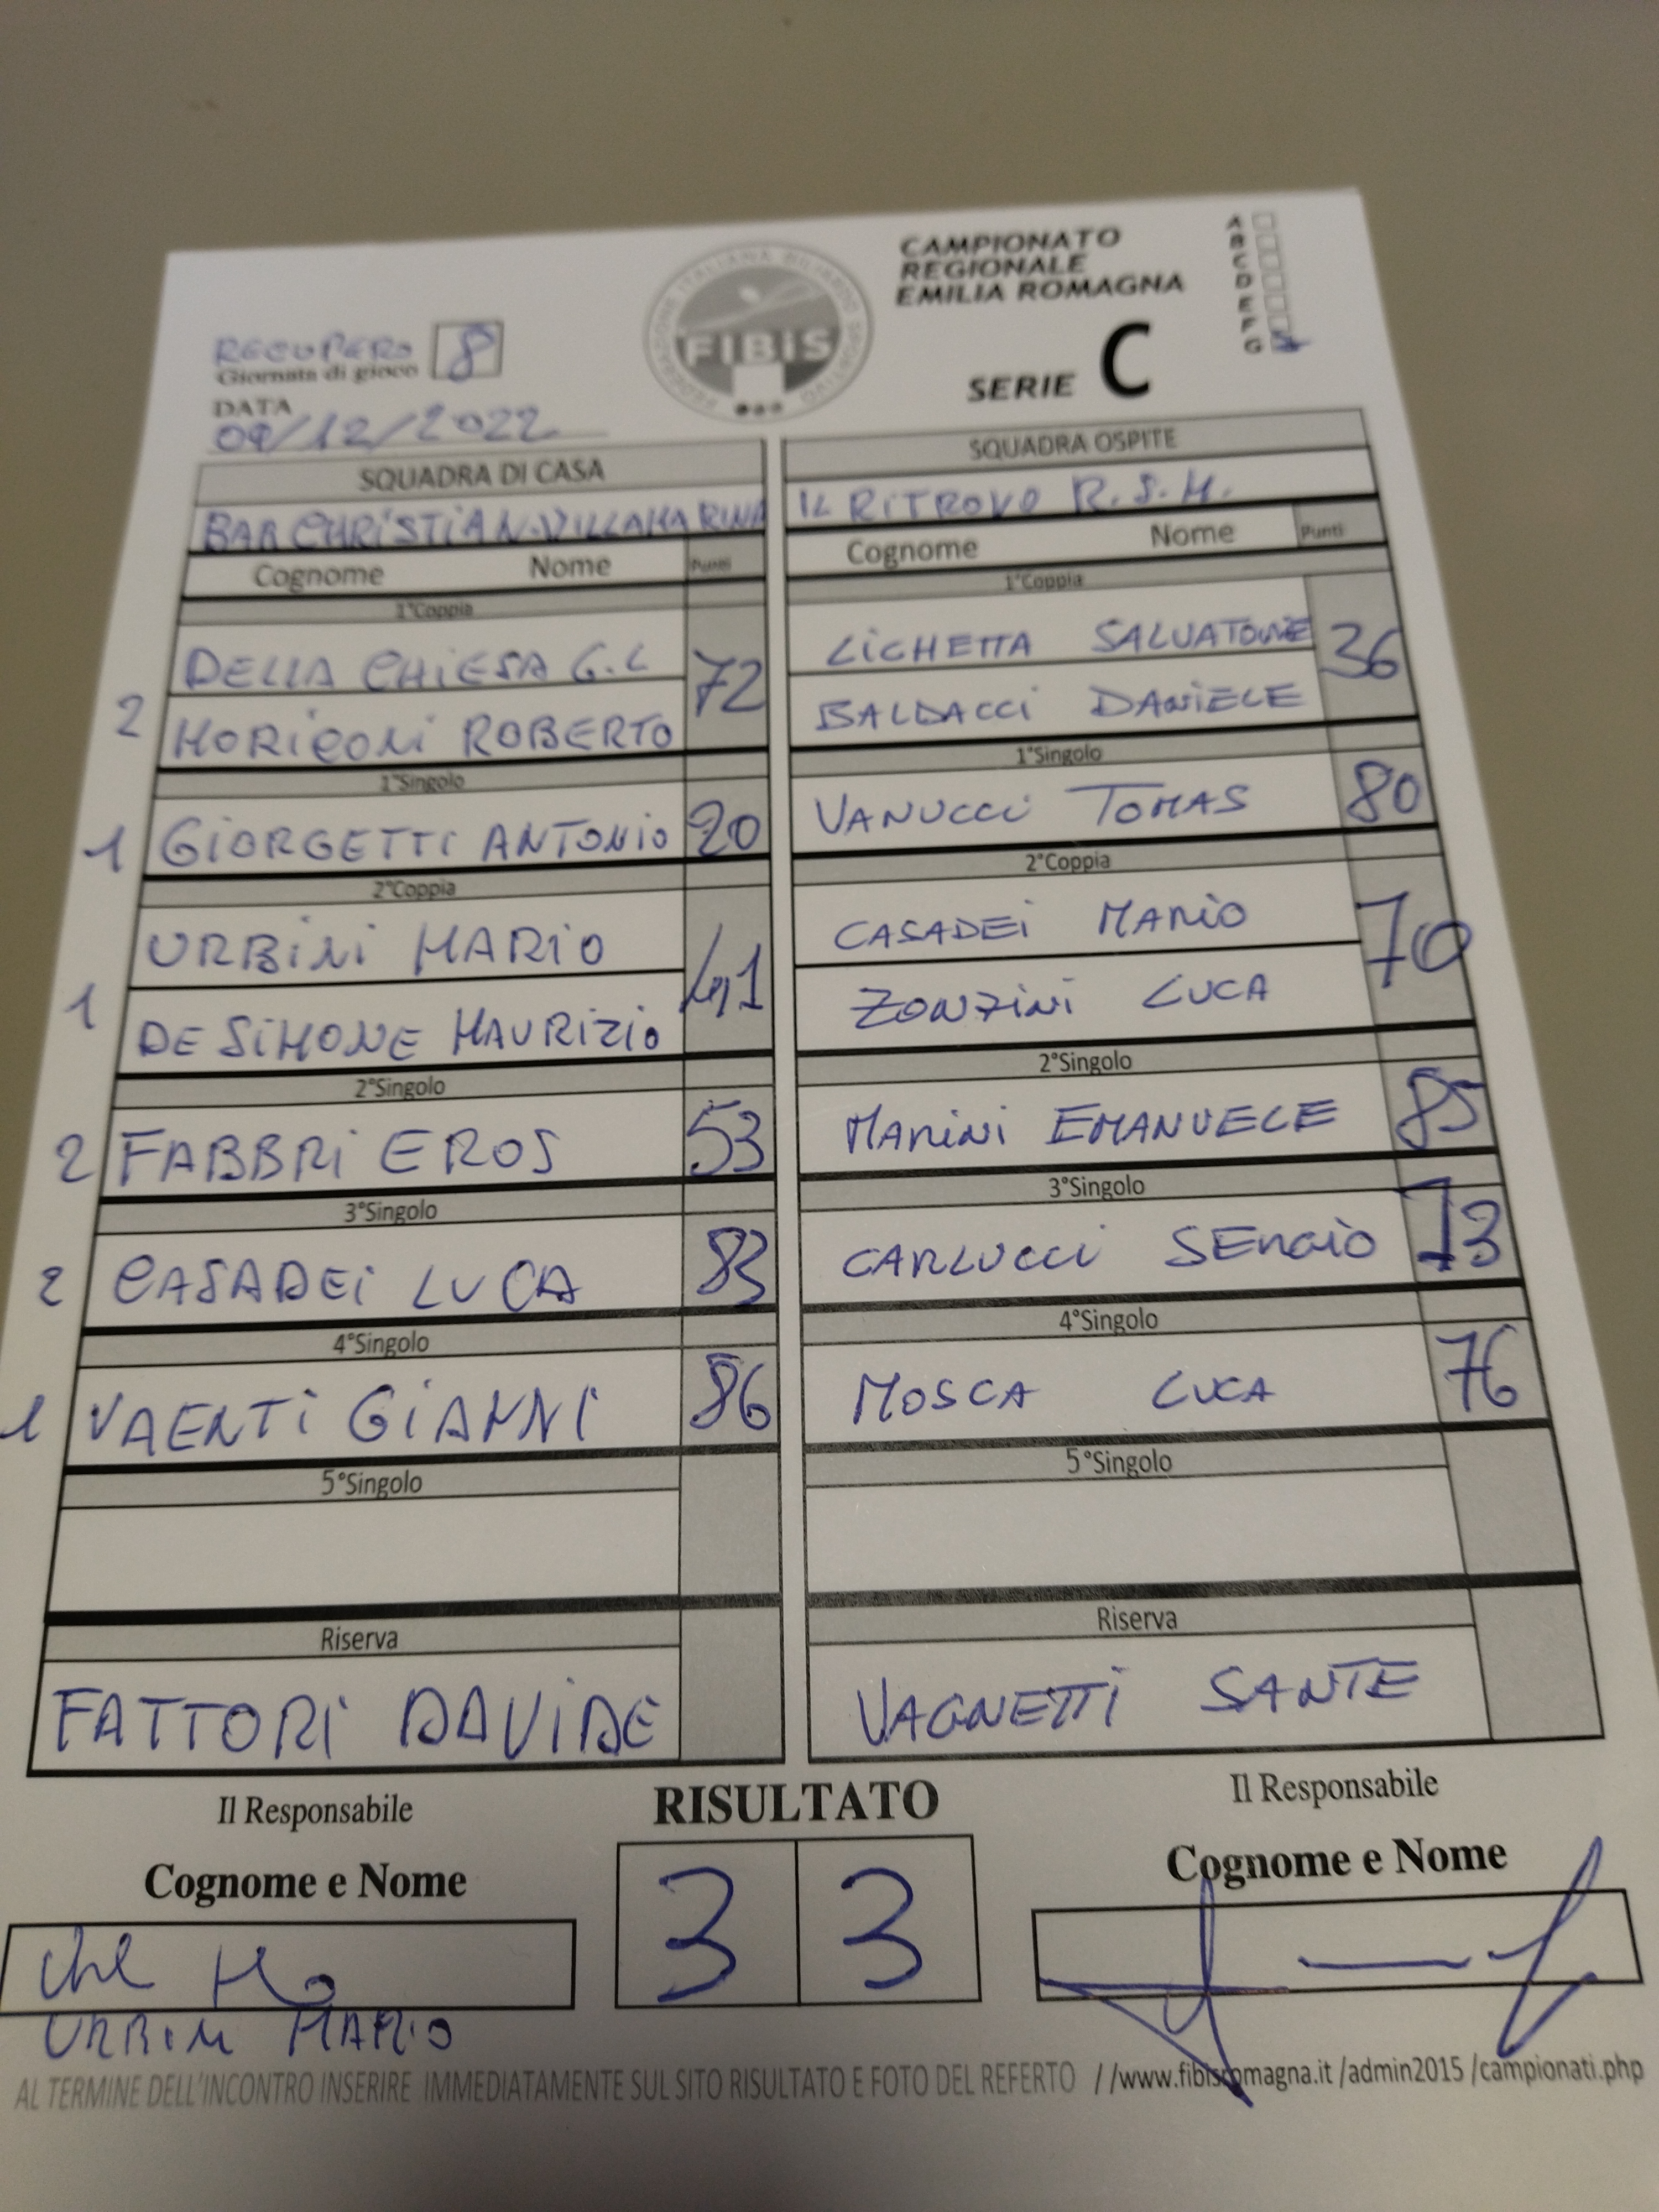 CAMPIONATO
REGIONALE
EMILIA ROMAGNA
SERIE C
A
B
C
D
E
F
G
FEDERAZIONE ITALIANA BILIARDO SPORTIVO
FIBIS
RECUPERO 8
Giornata di gioco
DATA
09/12/2022
SQUADRA DI CASA
BAR CHRISTIAN-VILLAMARINA
Cognome Nome Punti
1°Coppia
DELLA CHIESA G.L 72
2 MORIGONI ROBERTO
1°Singolo
1 GIORGETTI ANTONIO 20
2°Coppia
URBINI MARIO 41
1 DE SIMONE MAURIZIO
2°Singolo
2 FABBRI EROS 53
3°Singolo
2 CASADEI LUCA 83
4°Singolo
1 VAENTI GIANNI 86
5°Singolo
Riserva
FATTORI DAVIDE
SQUADRA OSPITE
IL RITROVO R.S.M.
Cognome Nome Punti
1°Coppia
LICHETTA SALVATORE 36
BALDACCI DANIELE
1°Singolo
VANUCCI TOMAS 80
2°Coppia
CASADEI MARIO 70
ZONZINI LUCA
2°Singolo
MARINI EMANUELE 85
3°Singolo
CARLUCCI SERGIO 73
4°Singolo
MOSCA LUCA 76
5°Singolo
Riserva
VAGNETTI SANTE
Il Responsabile
Cognome e Nome
URBINI MARIO
RISULTATO
3 3
Il Responsabile
Cognome e Nome
AL TERMINE DELL'INCONTRO INSERIRE IMMEDIATAMENTE SUL SITO RISULTATO E FOTO DEL REFERTO //www.fibisromagna.it /admin2015 /campionati.php